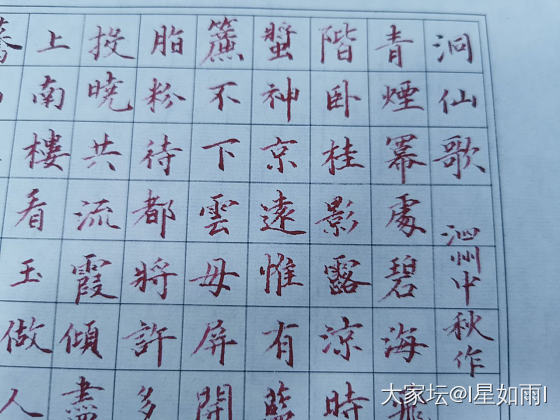 洞仙歌 沁州中秋作
青煙冪處碧海
階卧桂影露涼時
螿神京遠惟有藍
簾不下雲母屏開
脂粉待都將許多
投曉共流霞傾盡
上南樓看玉做人
大家坛@I星如雨I